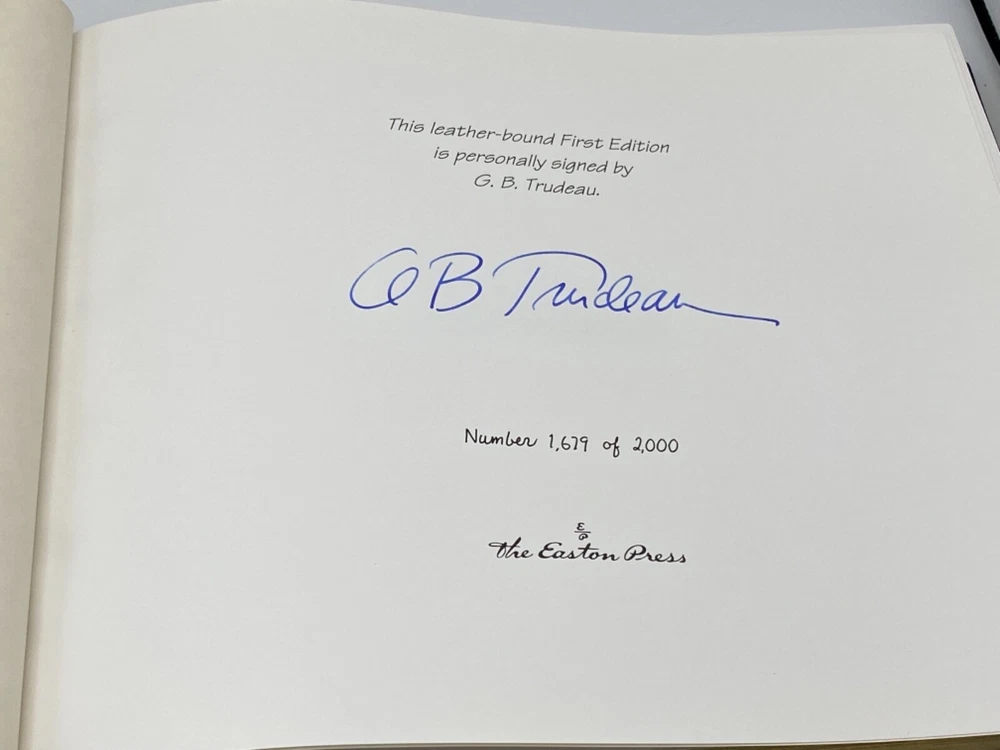 This leather-bound First Edition
is personally signed by
G. B. Trudeau.
G B Trudeau
Number 1,679 of 2,000
E/P
The Easton Press